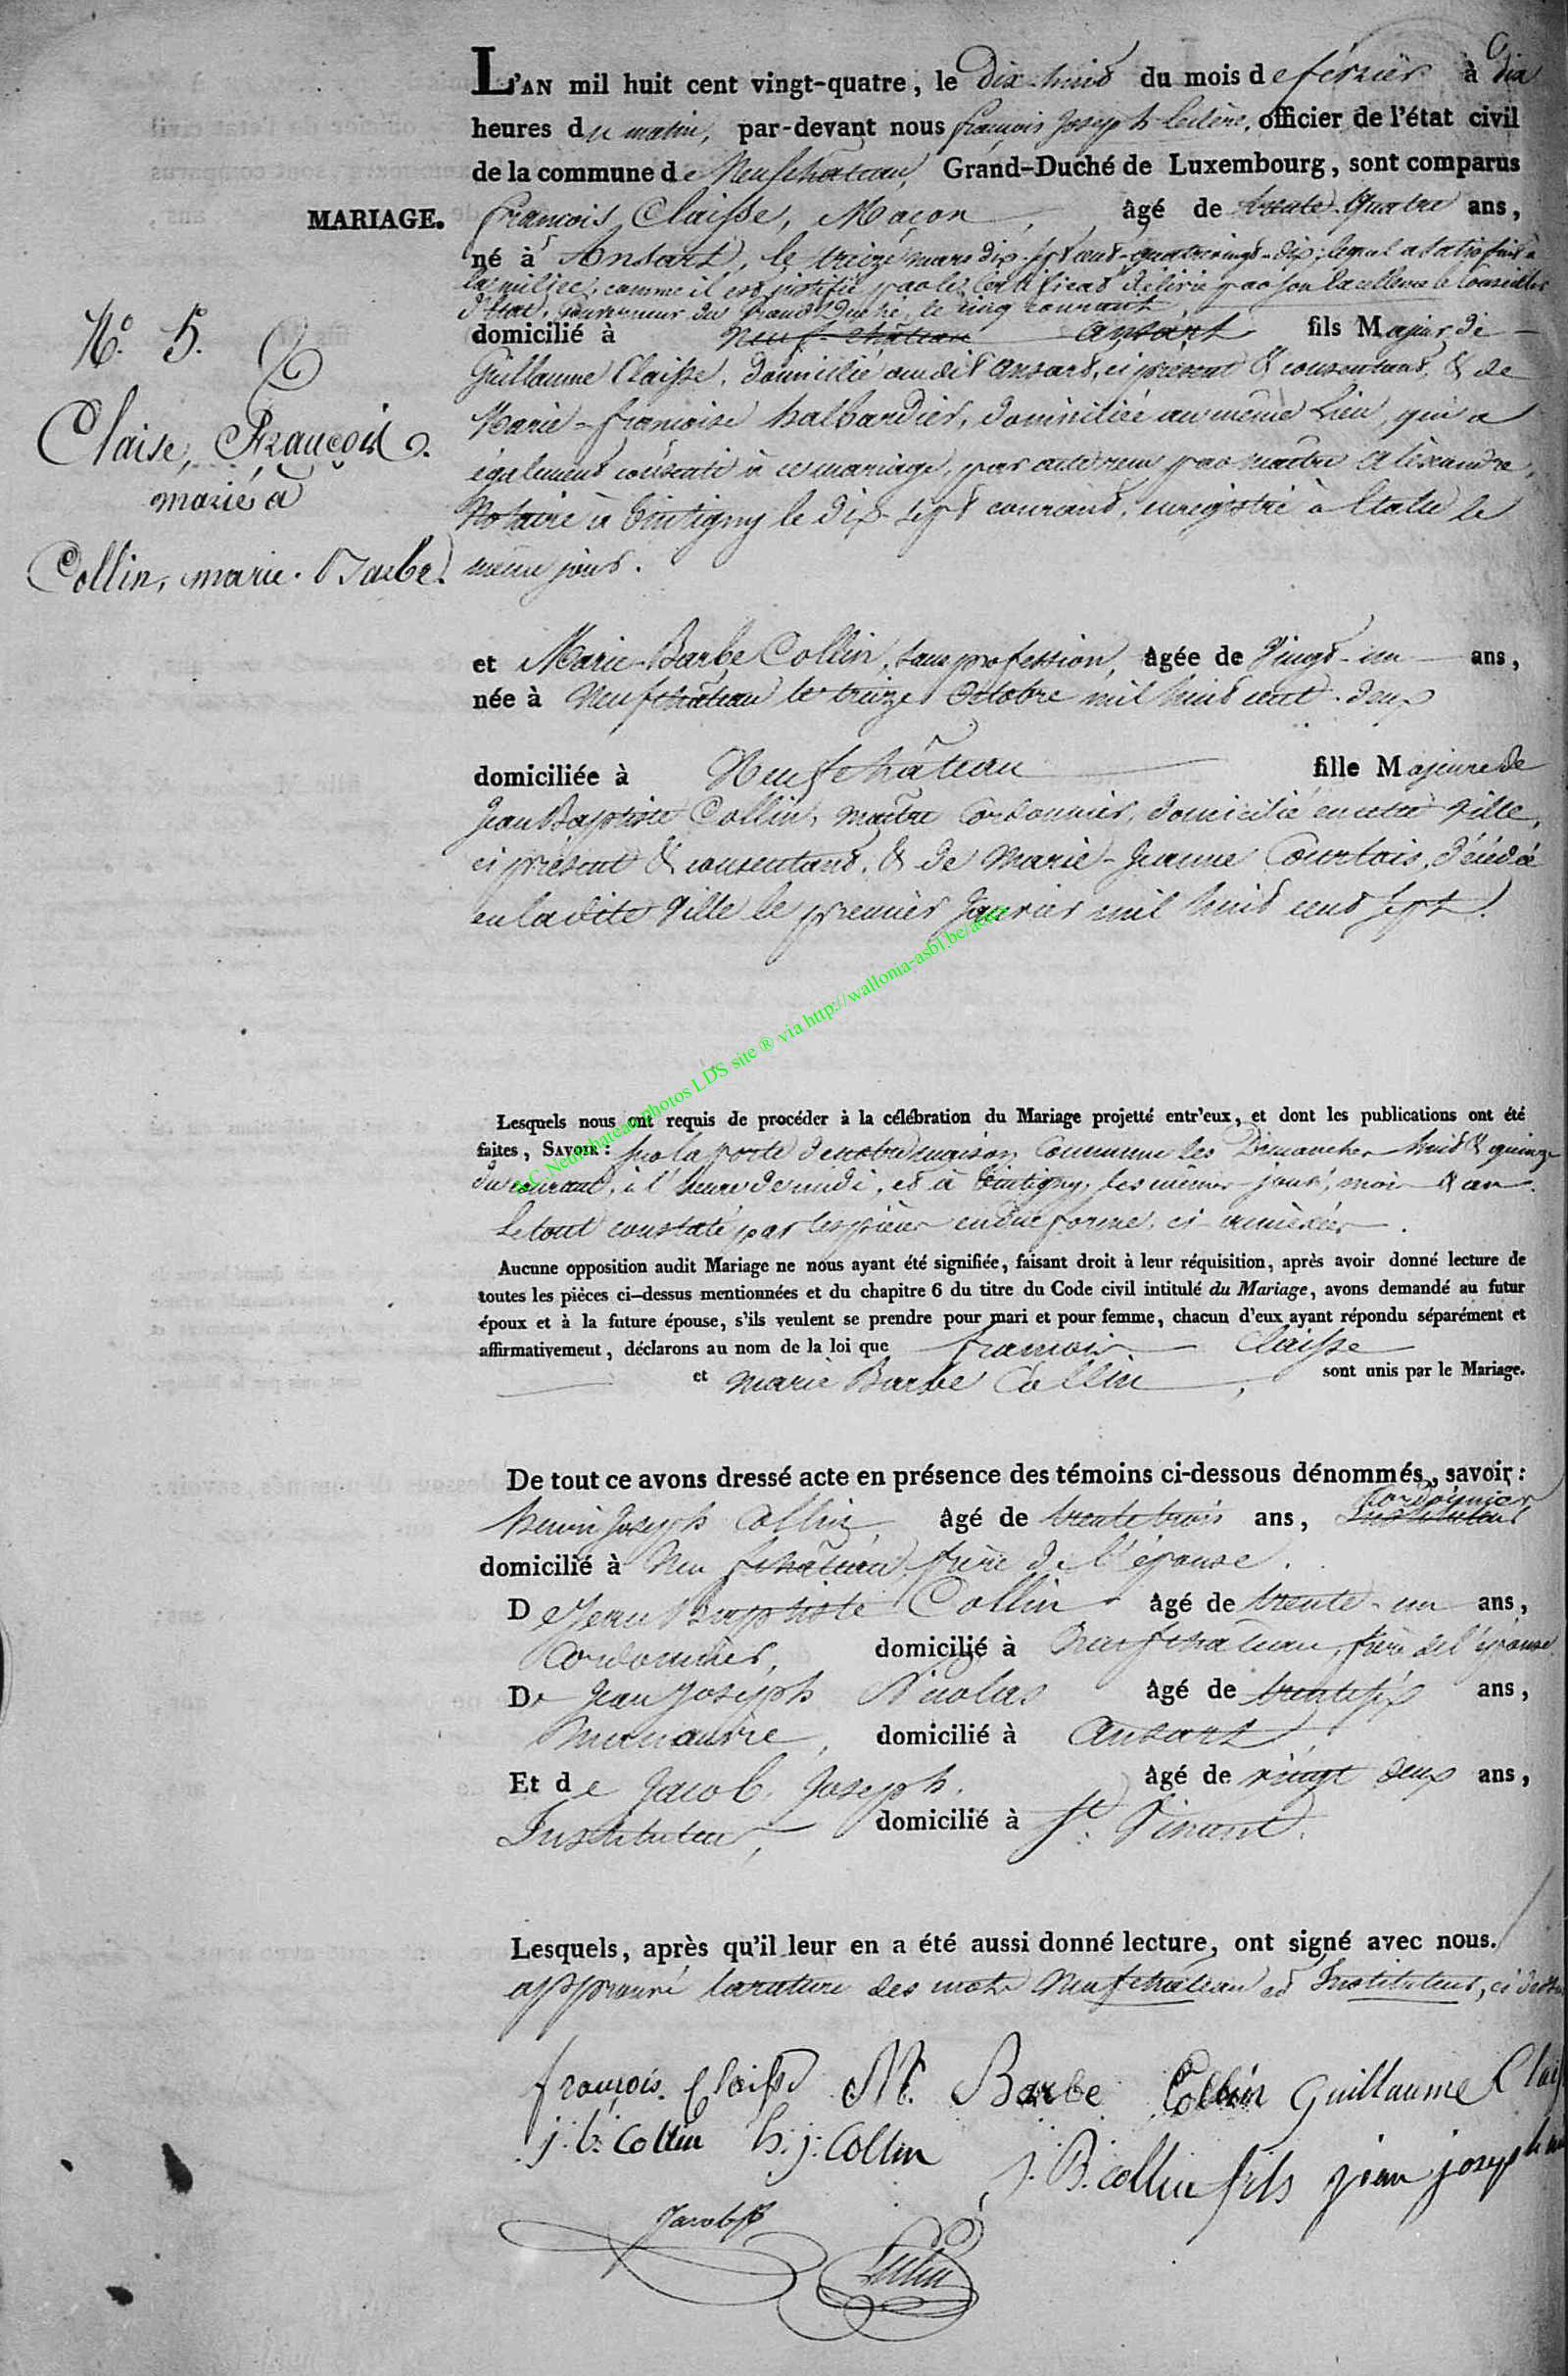 L'AN mil huit cent vingt-quatre, le dix-huit du mois de février à dix
heures du matin, par-devant nous françois Joseph officier de l'état civil
de la commune de Neufchâteau, Grand-Duché de Luxembourg, sont comparus
MARIAGE.
françois Claisse, Maçon, âgé de trente-quatre ans,
né à Ansart, le treize mars dix-sept cent-quatrevingt-dix; lequel a satisfait à
la milice, comme il est justifié par le Certificat délivré par son Excellence le Conseiller
d'Etat, Gouverneur du Grand Duché, le cinq courant,
domicilié à Neuf-château Ansart fils Majeur de
Guillaume Claisse, domicilié audit Ansart, ci présent & consentant, & de
Marie-françoise halbardier, domiciliée au même Lieu, qui a
également consenti à ce mariage, par acte reçu par maître Alexandre,
Notaire à Tintigny le dix-sept courant, enregistré à Etalle le
même jour.
N.º 5.
Claise, François
marié à
Collin, marie-Barbe.
et Marie-Barbe Collin, sans profession, âgée de vingt-un ans,
née à Neufchâteau le treize Octobre mil huit cent-deux
domiciliée à Neufchâteau fille Majeure de
Jean Baptiste Collin, maître Cordonnier, domicilié en cette ville,
ci présent & consentant, & de Marie-Jeanne Courtois, décédée
en ladite ville le premier Janvier mil huit cent sept.
A.C. Neufchateau photos LDS site ® via http://wallonia-asbl.be/actes
Lesquels nous ont requis de procéder à la célébration du Mariage projetté entr'eux, et dont les publications ont été
faites, SAVOIR: sur la porte de notre maison Commune les Dimanches huit & quinze
du courant, à l'heure de midi, et à Tintigny, les mêmes jours, mois & an.
Le tout constaté par les pièces en due forme, ci-annexées.
Aucune opposition audit Mariage ne nous ayant été signifiée, faisant droit à leur réquisition, après avoir donné lecture de
toutes les pièces ci-dessus mentionnées et du chapitre 6 du titre du Code civil intitulé du Mariage, avons demandé au futur
époux et à la future épouse, s'ils veulent se prendre pour mari et pour femme, chacun d'eux ayant répondu séparément et
affirmativement, déclarons au nom de la loi que françois Claisse
et marie Barbe Collin, sont unis par le Mariage.
De tout ce avons dressé acte en présence des témoins ci-dessous dénommés, savoir:
Cordonnier
henri Joseph Collin, âgé de trente trois ans, Instituteur
domicilié à Neufchâteau, frère de l'épouse.
De Jean Baptiste Collin âgé de trente-un ans,
Cordonnier, domicilié à Neufchâteau, frère de l'épouse
De Jean Joseph Nicolas âgé de trente six ans,
Manœuvre, domicilié à Ansart,
Et de Jacob, Joseph. âgé de vingt deux ans,
Instituteur, domicilié à St. Vincent.
Lesquels, après qu'il leur en a été aussi donné lecture, ont signé avec nous.
approuvé la rature des mots Neufchâteau et Instituteur, ci dessus
françois Claisse M. Barbe Collin Guillaume
j. b. Collin h. j. Collin
J. B. collin fils jean joseph